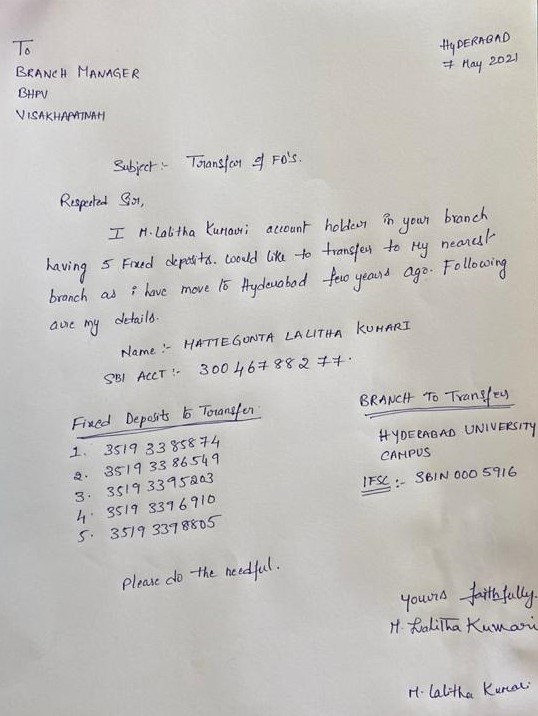 To
HYDERABAD
7 May 2021
BRANCH MANAGER
BHPV
VISAKHAPATNAM
Subject :- Transfer of FD'S.
Respected Sir,
I M. Lalitha Kumari account holder in your branch
having 5 Fixed deposits. would like to transfer to My nearest
branch as i have move to Hyderabad few years ago. Following
are my details.
Name :- MATTEGUNTA LALITHA KUMARI
SBI ACCT :- 300 467 88 2 77.
Fixed Deposits to Transfer
1. 3519 33 85874
2. 3519 33 86549
3. 3519 3395203
4. 3519 3396910
5. 3519 3398805
BRANCH To Transfer
HYDERABAD UNIVERSITY
CAMPUS
IFSC :- SBIN 000 5916
Please do the needful.
yours faithfully.
M. Lalitha Kumari
M. Lalitha Kumari